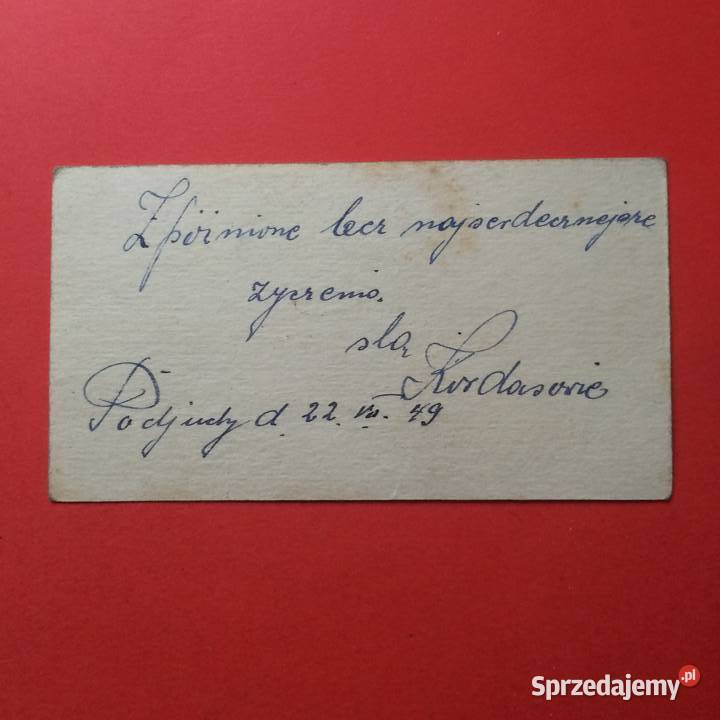 Zpóźnione lecz najserdeczniejsze
życzenia.
ślą
Kordasowie
Podjudy d. 22. VII. 49
Sprzedajemy.pl